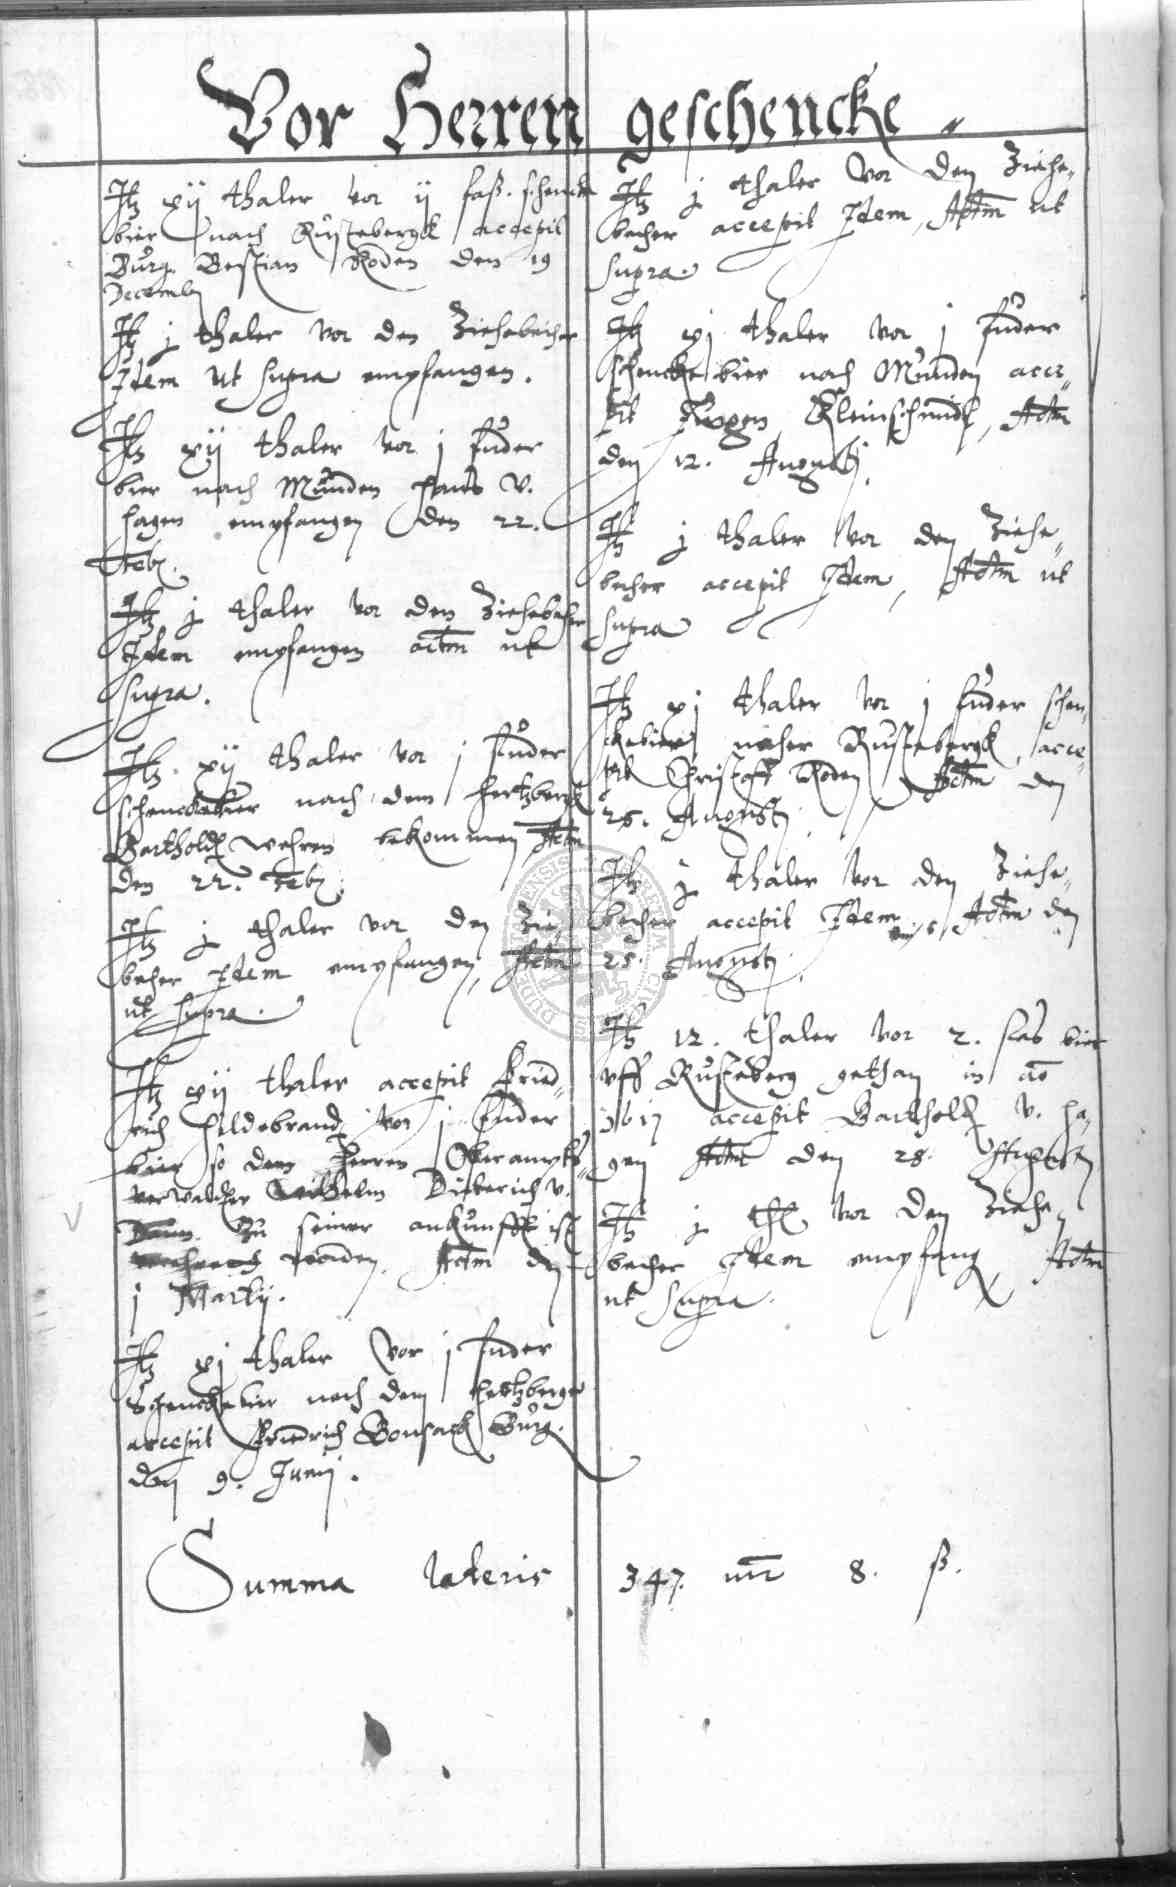 Vor Herren geschencke
Itz xij thaler vor ij faß schencke
bier nach Rustebergk accepit
Burg. Bestian Roden den 19
Decemb
Itz j thaler vor den Ziesebecher
Idem ut supra empfangen.
Itz xij thaler vor j fuder
bier nach Münden Hans v.
Hagen empfangen den 22.
Feb.
Itz j thaler vor den Ziesebecher
Idem empfangen actm ut
supra.
Itz xij thaler vor j fuder
schenckebier nach dem Hertzbergk
Barthold Wehren bekommen Actm
den 22. Feb.
Itz j thaler vor den Zie
becher Idem empfangen, Actm
ut supra.
Itz xij thaler accepit Fried-
rich Hildebrand vor j fuder
bier so dem Herren Oberampts
verwalder Wilhelm Dieterich v.
Daun zu seiner ankunfft ist
worden. Actm den
j Martij.
Itz xj thaler vor j fuder
Schenckebier nach dem Hertzberge
accepit Friedrich Bonsack Burg.
den 9. Junij.
Itz j thaler vor den Ziese-
becher accepit Idem, Actm ut
supra.
Itz xj thaler vor j fuder
schenckebier nach Münden acce-
pit Kleinschmidt, Actm
den 12. Augusti.
Itz j thaler vor den Ziese-
becher accepit Idem, Actm ut
supra
Itz xj thaler vor j fuder schen-
ckebier nacher Rustebergk, acce-
pit Christoff Roden Actm den
25. Augusti.
Itz j thaler vor den Ziese-
becher accepit Idem, Actm den
25. Augusti.
Itz 12. thaler vor 2. fas bier
uff Rusteberg gethan in ao
1617 accepit Barthold v. Ha-
gen Actm den 28. Augusti
Itz j thl vor den Ziese-
becher Idem empfang Actm
ut supra.
Summa lateris 347. mr 8. ß.